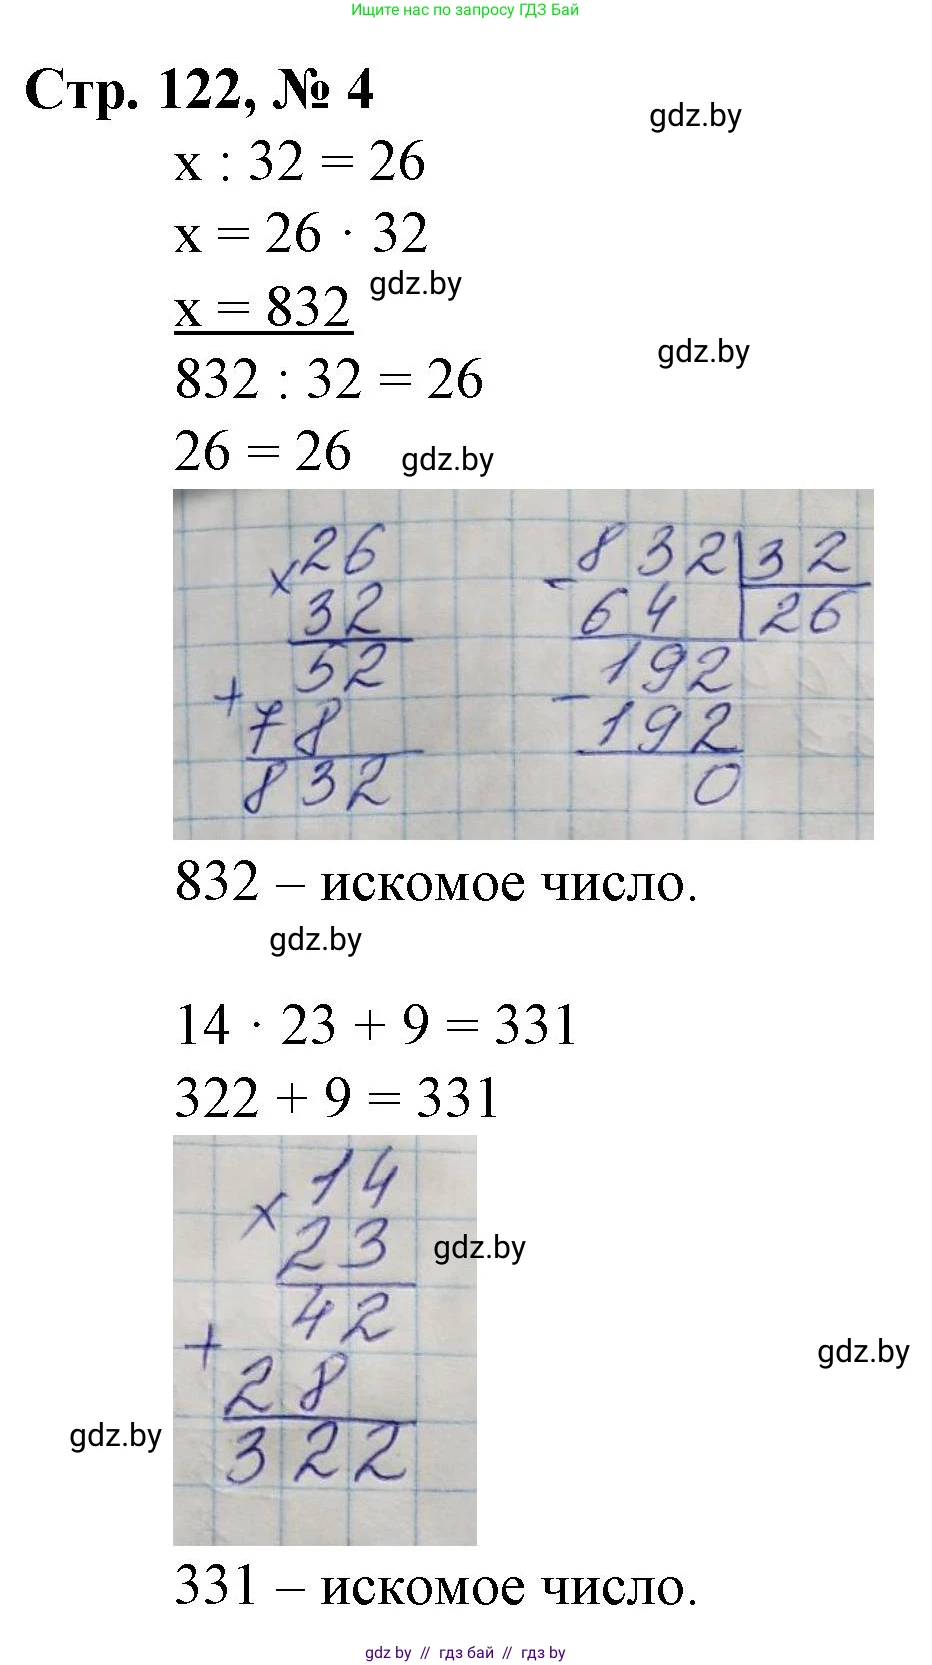 Ищите нас по запросу ГДЗ Бай
Стр. 122, № 4
gdz.by
x : 32 = 26
x = 26 · 32
gdz.by
x = 832
gdz.by
832 : 32 = 26
26 = 26
gdz.by
× 26
32
52
+ 78
832
– 832 | 32
64 | 26
– 192
192
0
832 – искомое число.
gdz.by
14 · 23 + 9 = 331
322 + 9 = 331
× 14
23
gdz.by
42
+ 28
gdz.by
322
gdz.by
331 – искомое число.
gdz by // гдз бай // гдз by